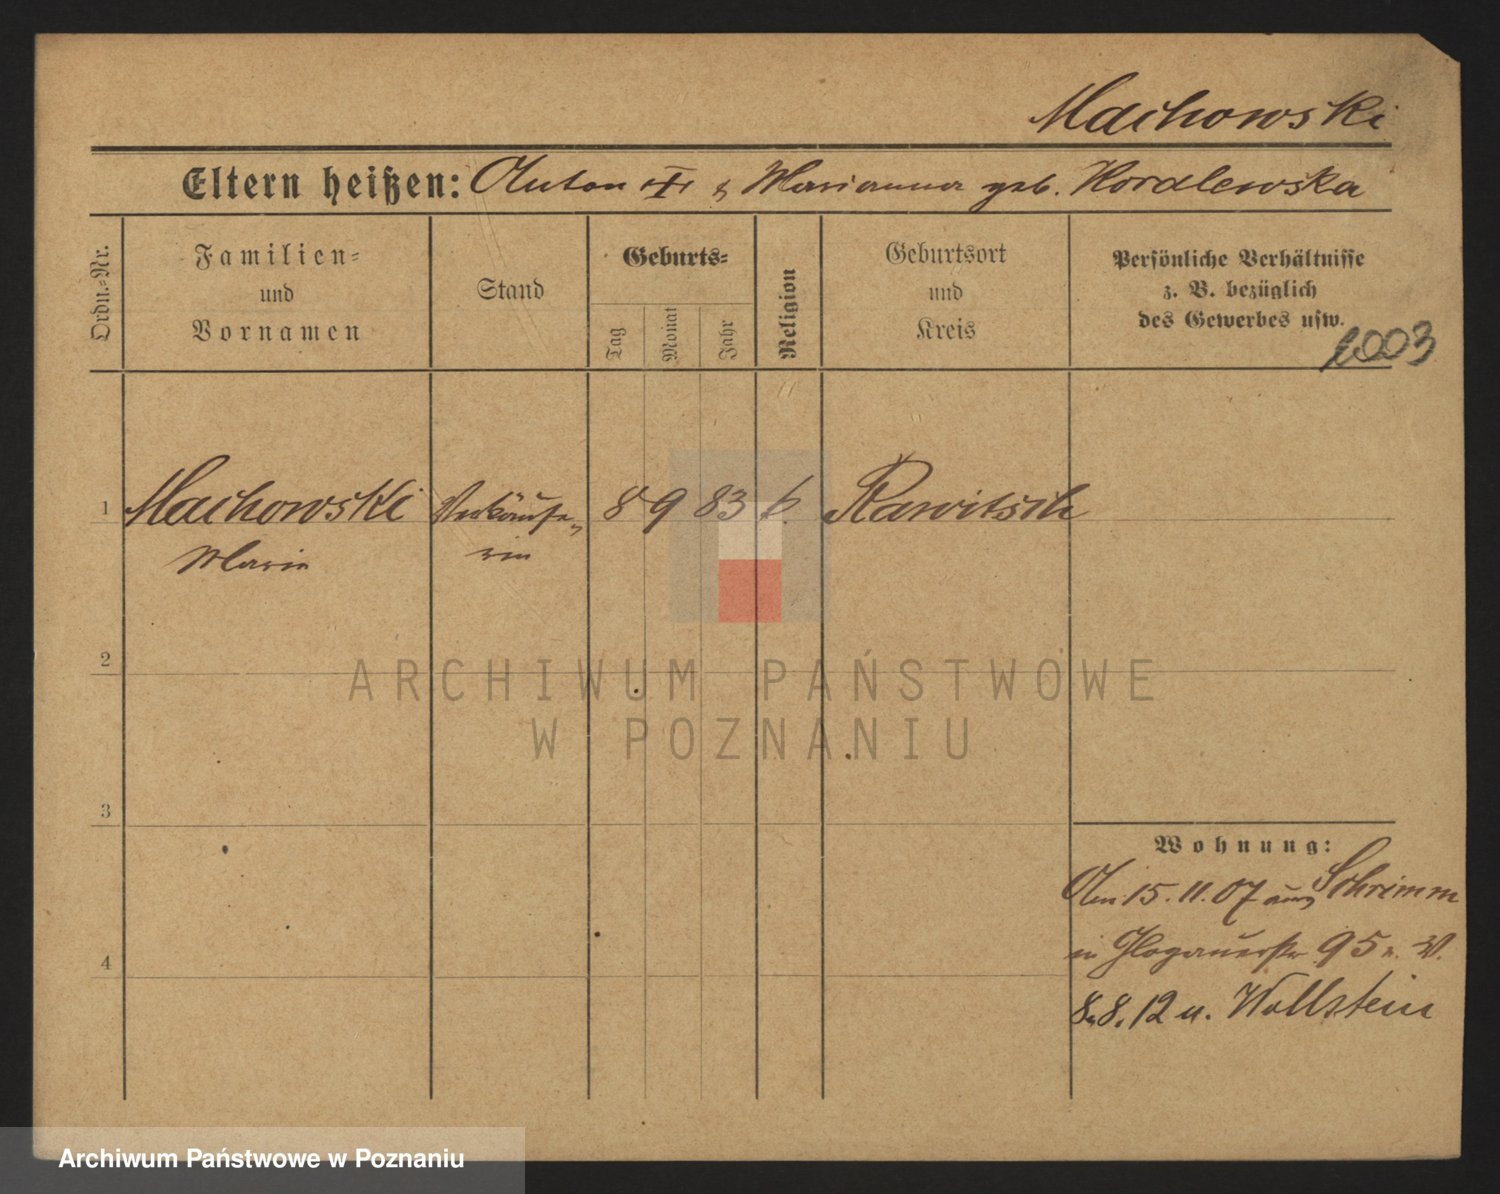 Machowski
Eltern heißen: Anton † & Marianna geb. Kordlewska
Ordn.-Nr.
Familien-
und
Vornamen
Stand
Geburts-
Tag
Monat
Jahr
Religion
Geburtsort
und
Kreis
Persönliche Verhältnisse
z. B. bezüglich
des Gewerbes usw.
2003
1 Machowski Verkäufe- 8 9 83 k. Rawitsch
Marie rin
2
ARCHIWUM PAŃSTWOWE
W POZNANIU
3
Wohnung:
Am 15.11.07 aus Schrimm
in Glogauerstr 95 n. W.
4
8.8.12 n. Wollstein
Archiwum Państwowe w Poznaniu